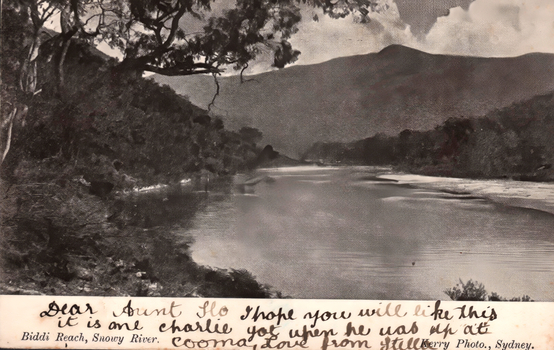 Dear Aunt Flo I hope you will like this
it is one charlie got when he was up at
Cooma, Love from
Biddi Reach, Snowy River.
Kerry Photo., Sydney.